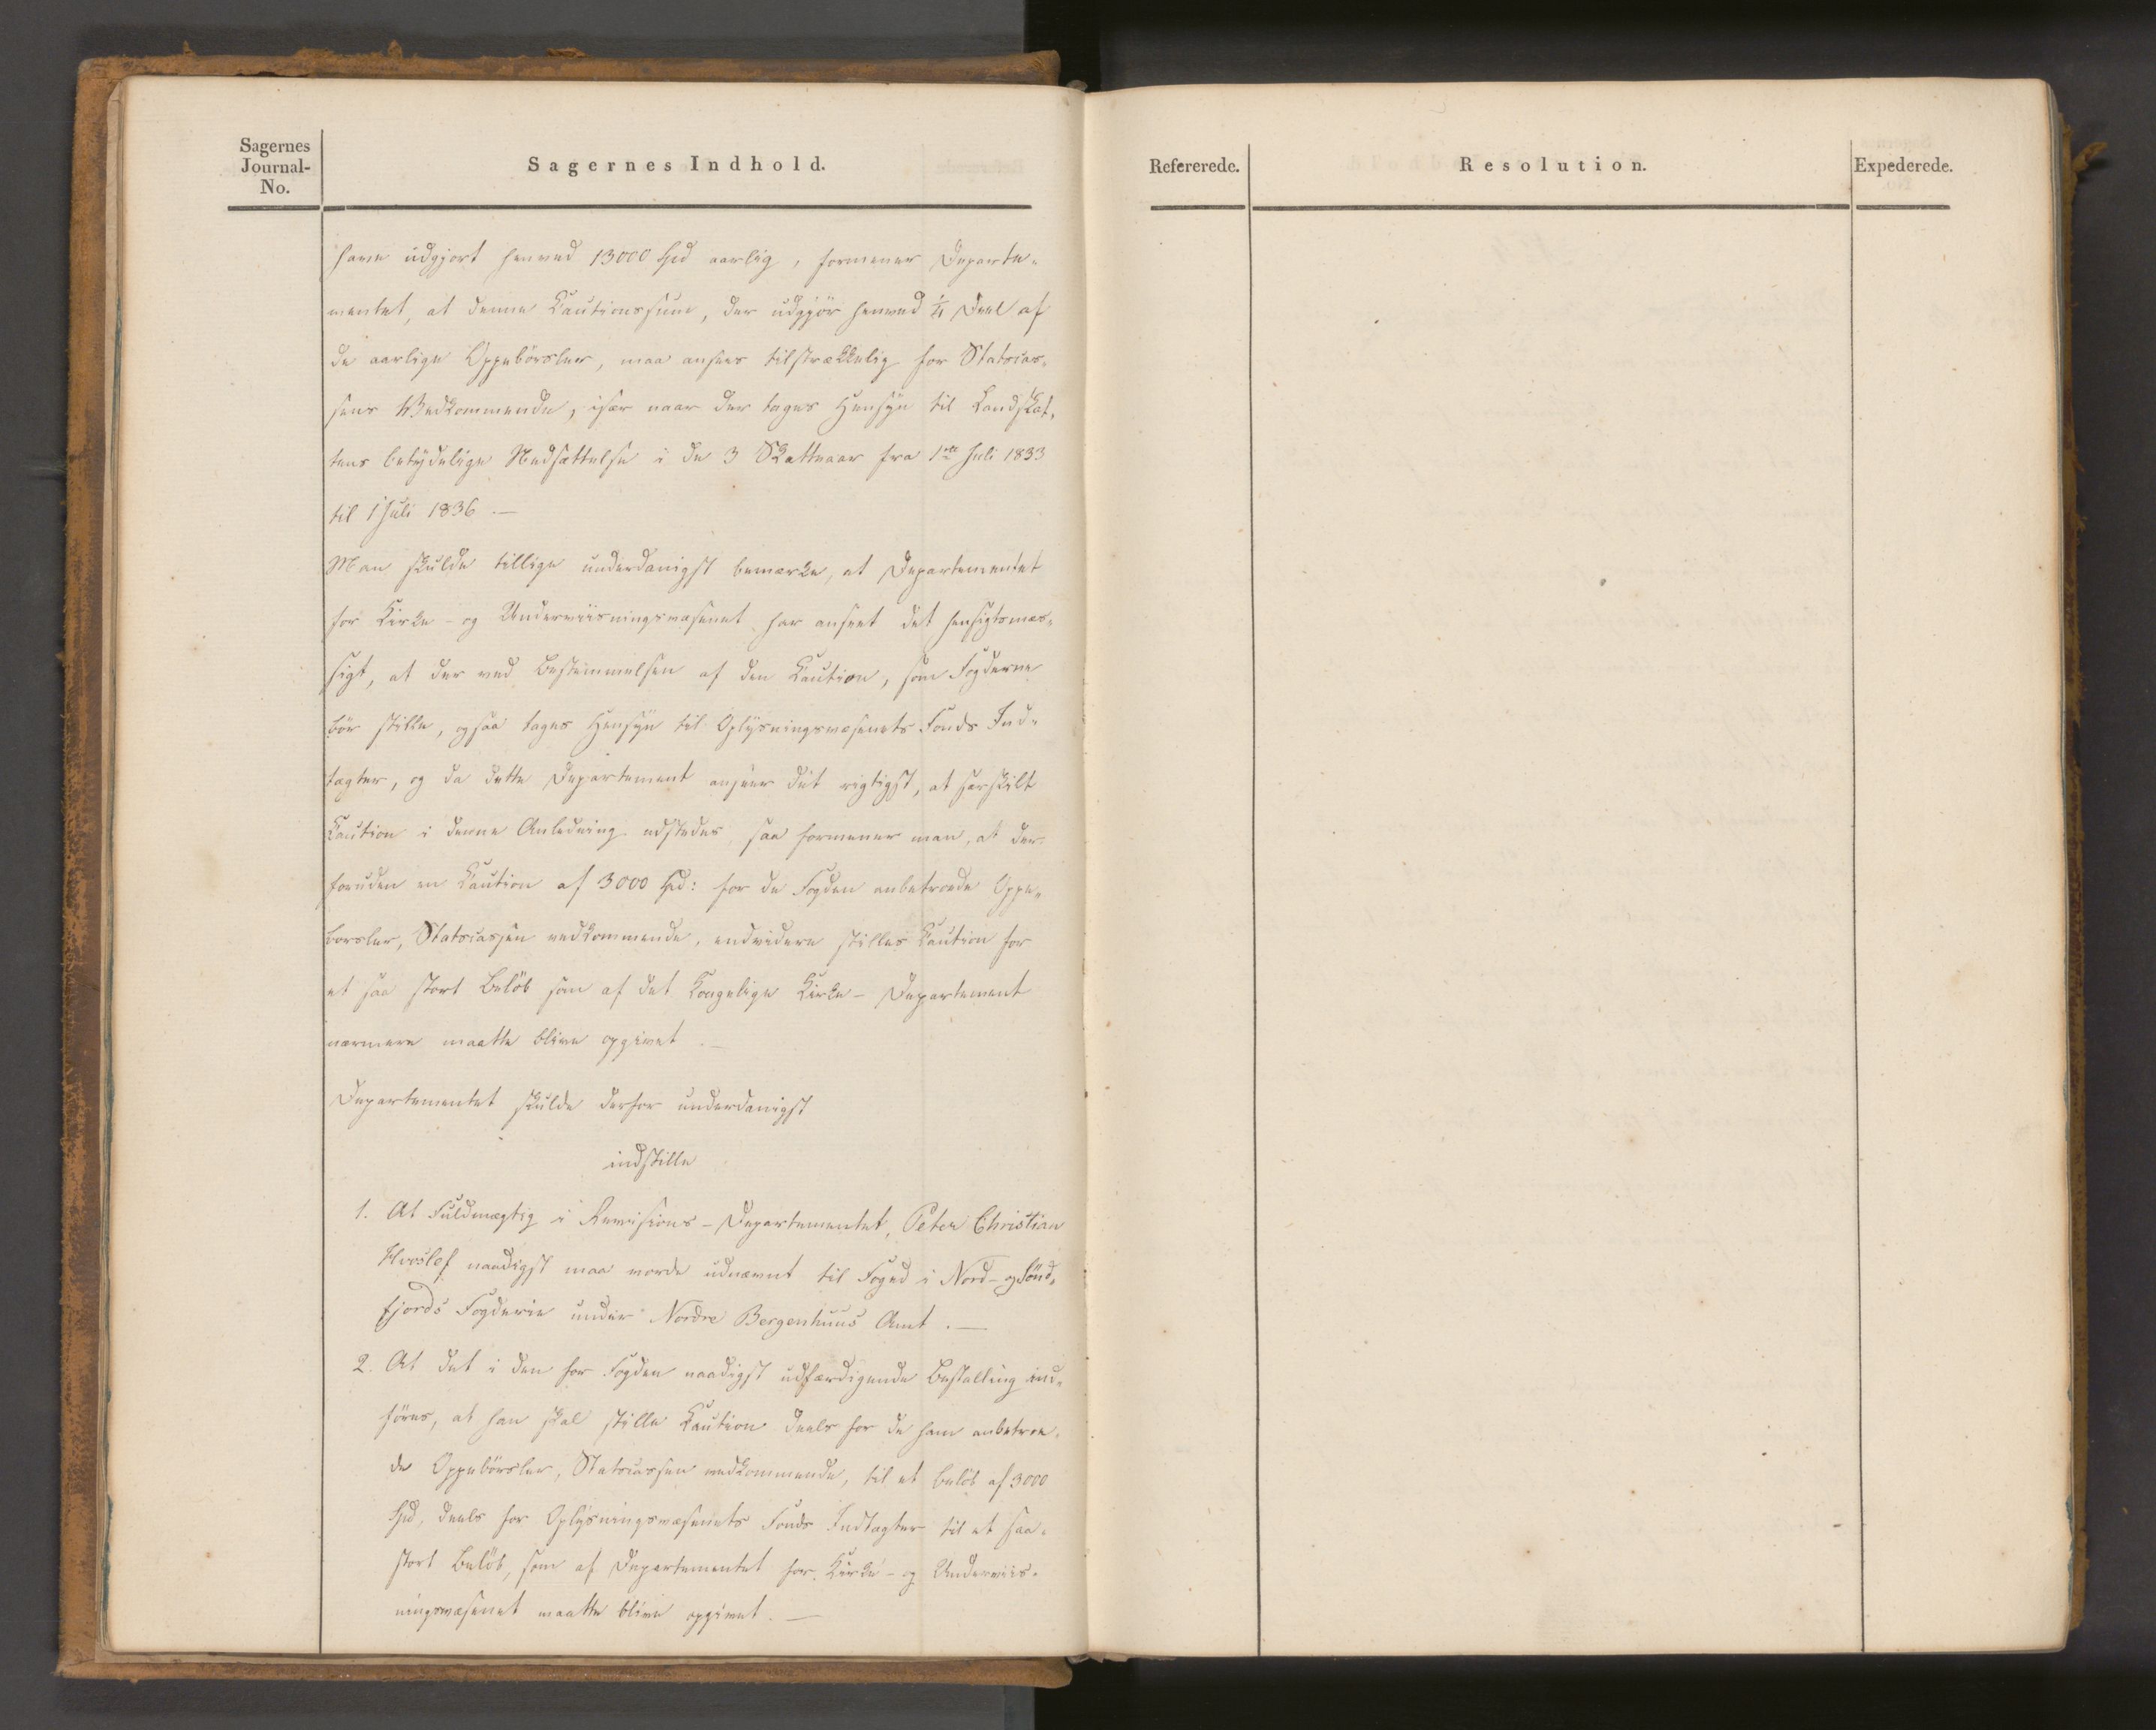 Sagernes
Journal-
No.
Sagernes Indhold.
Refererede.
Resolution.
Expederede.
have udgjort henved 13000 Spd aarlig, formener Departe-
mentet, at denne Cautionssum, der udgjör henved ¼ Deel af
de aarlige Oppebörsler, maa ansees tilstrækkelig for Statscas-
sens Vedkommende, især naar der tages Hensyn til Landskat-
tens betydelige Nedsættelse i de 3 Skatteaar fra 1ste Juli 1833
til 1 Juli 1836.—
Man skulde tillige underdanigst bemærke, at Departementet
for Kirke- og Underviisningsvæsenet har anseet det hensigtsmæs-
sigt, at der ved Bestemmelsen af den Caution, som Fogderne
bör stille, ogsaa tages Hensyn til Oplysningsvæsenets Fonds Ind-
tægter, og da dette Departement anseer det rigtigst, at særskilt
Caution i denne Anledning udstedes, saa formener man, at der
foruden en Caution af 3000 Spd: for de Fogden anbetroede Oppe-
börsler, Statscassen vedkommende, endvidere stilles Caution for
et saa stort Belöb som af det Kongelige Kirke- Departement
nærmere maatte blive opgivet.—
Departementet skulde derfor underdanigst
indstille
1. At Fuldmægtig i Revisions-Departementet, Peter Christian
Hvoslef naadigst maa vorde udnævnt til Foged i Nord- og Sönd-
fjords Fogderie under Nordre Bergenhuus Amt.—
2. At det i den for Fogden naadigst udfærdigende Bestalling ind-
föres, at han skal stille Caution deels for de ham anbetroe-
de Oppebörsler, Statscassen vedkommende, til et Belöb af 3000
Spd, deels for Oplysningsvæsenets Fonds Indtægter til et saa-
stort Belöb, som af Departementet for Kirke- og Underviis-
ningsvæsenet maatte blive opgivet.—